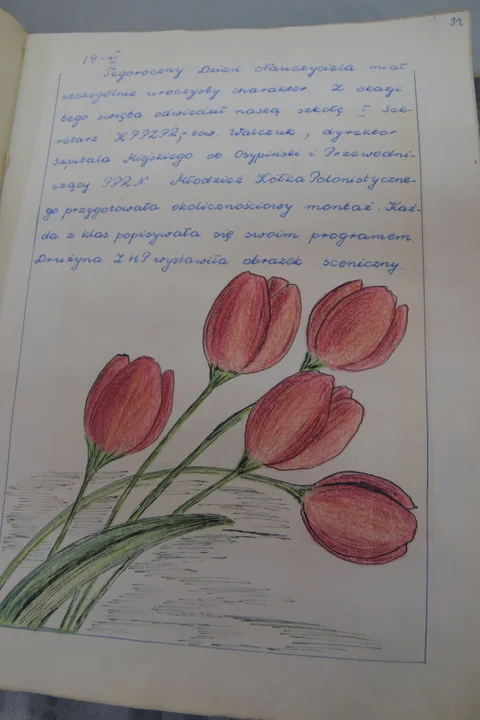 31
19-XI
Tegoroczny Dzień Nauczyciela miał
szczególnie uroczysty charakter. Z okazji
tego święta odwiedził naszą szkołę I Sek-
retarz KPPZPR,- tow. Walczuk, dyrektor
Szpitala Miejskiego ob. Osypiński i Przewodni-
czący PPRN. Młodzież Kółka Polonistyczne-
go przygotowała okolicznościowy montaż. Każ-
da z klas popisywała się swoim programem.
Drużyna ZHP wystawiła obrazek sceniczny.